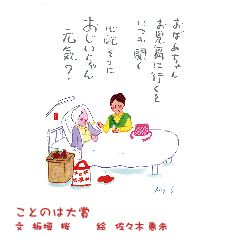 おばあちゃん
お見舞に行くと
いつも聞く
心配そうに
おじいちゃん
元気?
ことのは大賞
文 板垣 桜 絵 佐々木 恵未